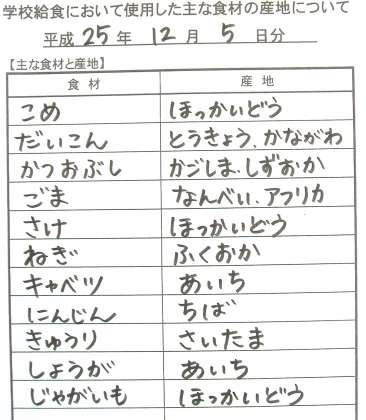 学校給食において使用した主な食材の産地について
平成 25 年 12 月 5 日分
【主な食材と産地】
食材 産地
こめ ほっかいどう
だいこん とうきょう、かながわ
かつおぶし かごしま、しずおか
ごま なんべい、アフリカ
さけ ほっかいどう
ねぎ ふくおか
キャベツ あいち
にんじん ちば
きゅうり さいたま
しょうが あいち
じゃがいも ほっかいどう